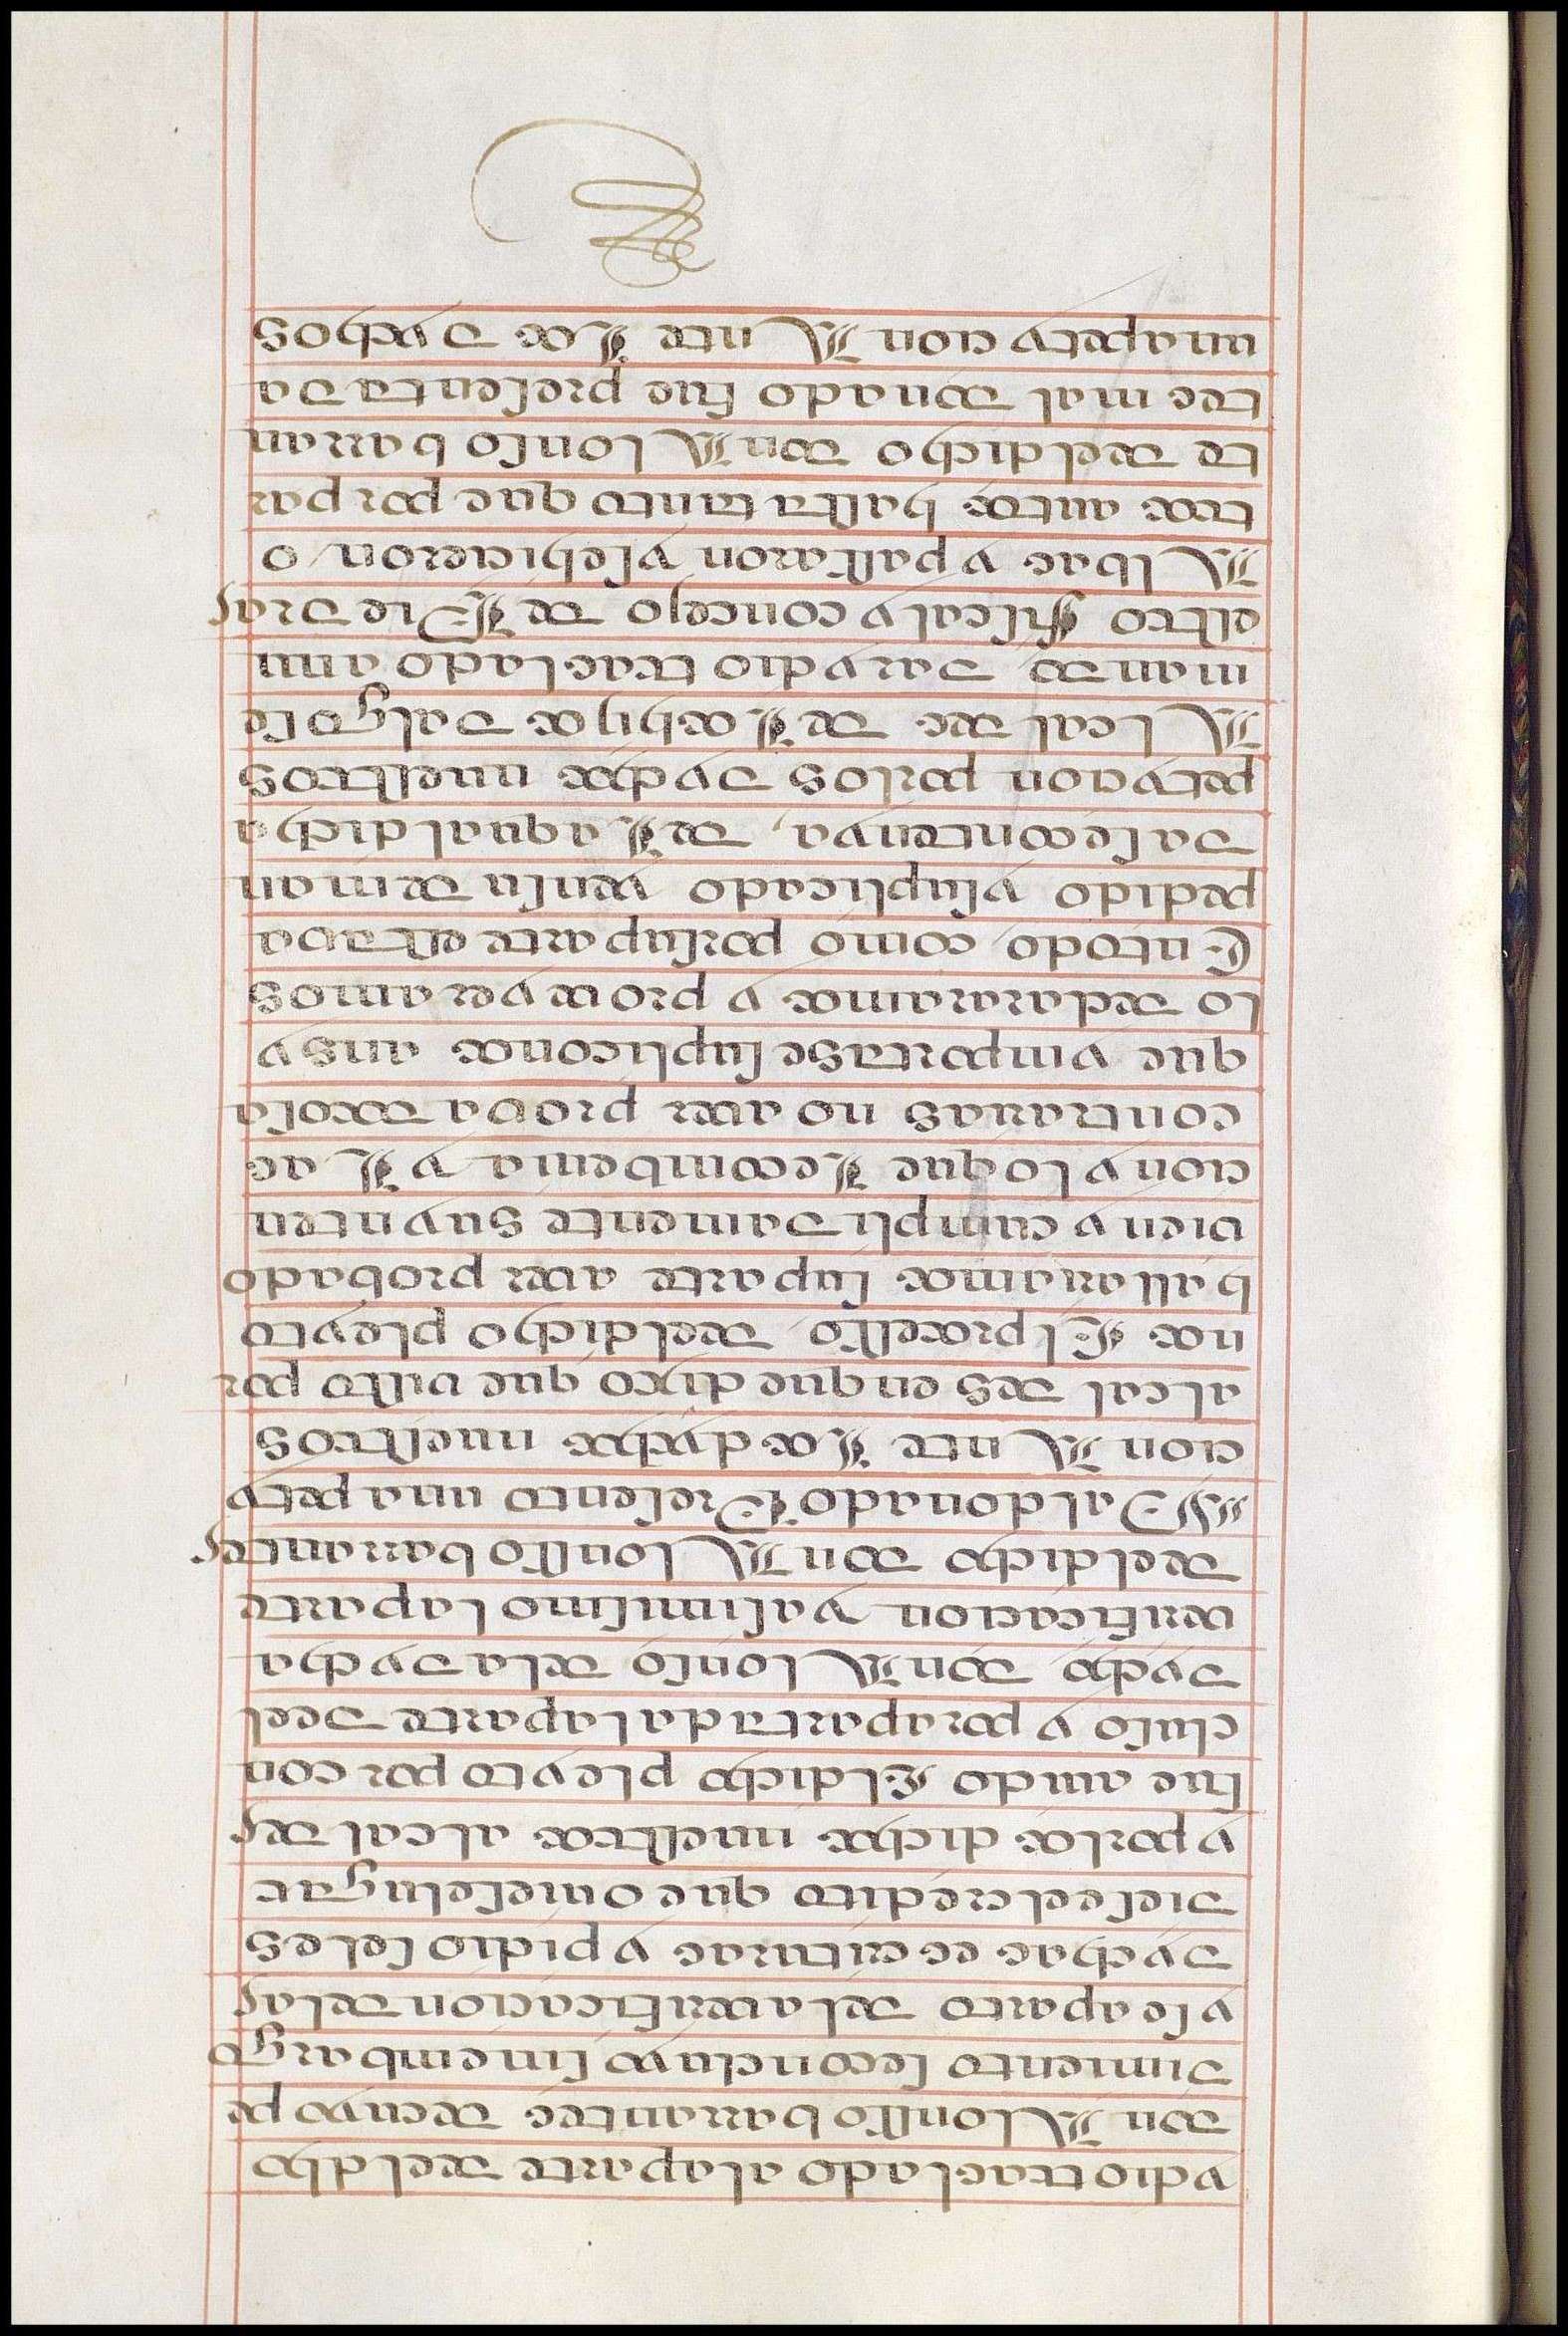 y dio traslado a la parte de el dicho
Don Alonsso barrantes de cuyo pe
dimiento se concluyo sin embargo
y se aparto de la verificacion de las
dichas escrituras y pidio se les
diese el credito que ouiesen lugar
y por los dichos nuestros alcaldes
fue auido El dicho pleyto por con
cluso y por apartada la parte de el
dicho Don Alonso de la dicha
verificacion y al ultimo la parte
de el dicho Don Alonsso barrantes
Maldonado Presento una peti
cion Ante Los dichos nuestros
alcaldes en que dixo que visto por
nos El processo de el dicho pleyto
hallariamos su parte aver probado
bien y cumplidamente su ynten
cion y lo que Le combenia y Las
contrarias no aver probado cosa
que ymportasse suplico nos ansi
lo declararamos y proveyeramos
En todo como por su parte estaba
pedido y suplicado y en su deman
da se contenia, de La qual dicha
peticion por los dichos nuestros
Alcaldes de Los hijos dalgo se
mando dar y dio traslado a nu
estro fiscal y concejo de Piedras
Albas y passaron y se hicieron o
tros autos hasta tanto que por par
te de el dicho Don Alonso barran
tes maldonado fue presentada
una peticion Ante Los dichos